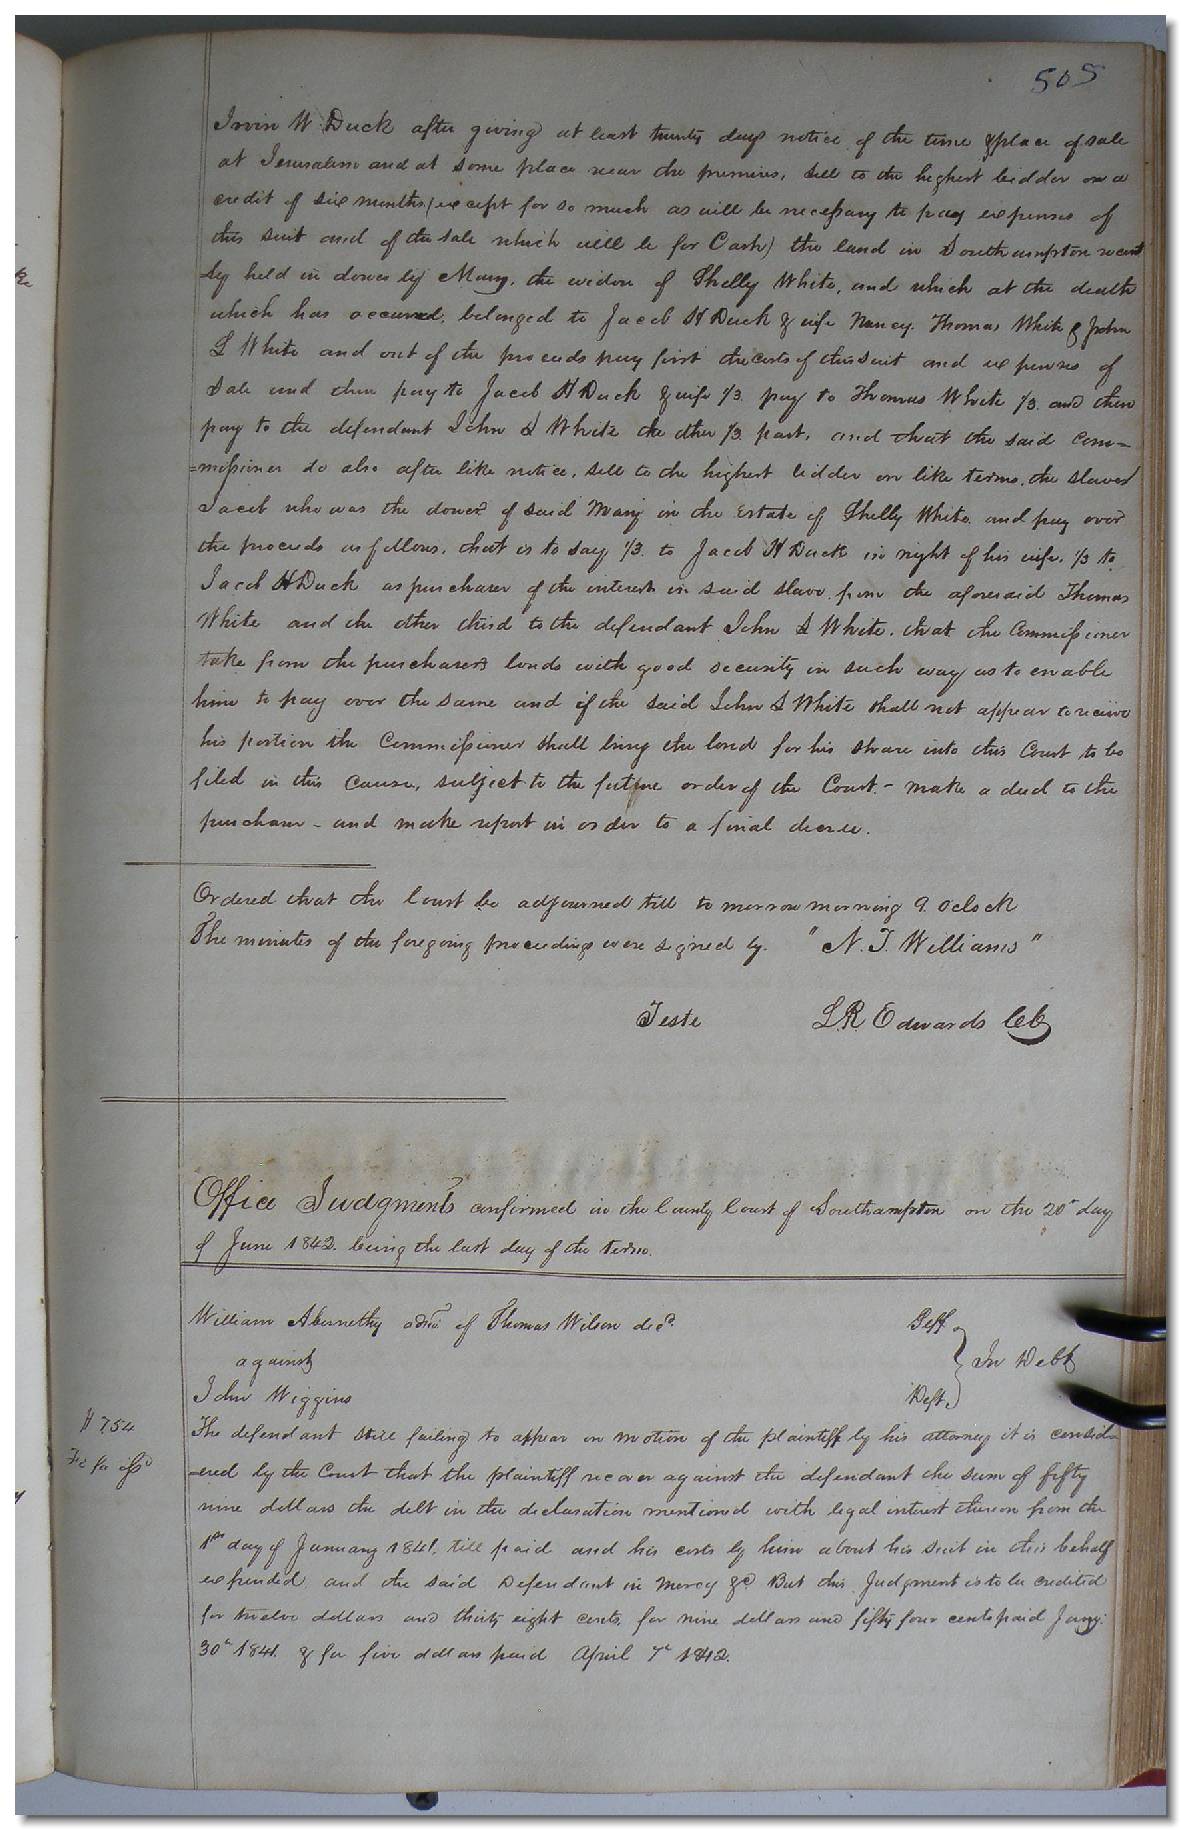 505
Irvin W. Duck after giving at least twenty days notice of the time & place of sale
at Jerusalem and at some place near the premises, sell to the highest bidder on a
credit of six months, (except for so much as will be necessary to pay expenses of
this suit and of the sale which will be for Cash) the land in Southampton recent
ly held in dower by Mary, the widow of Shelly White, and which at the death
which has occured, belonged to Jacob H Duck & wife Nancy. Thomas White & John
S White and out of the proceeds pay first the costs of this suit and expenses of
Sale and then pay to Jacob H Duck & wife 1/3. pay to Thomas White 1/3. and then
pay to the defendant John S White the other 1/3 part, and that the said Com=
=missioner do also after like notice, sell to the highest bidder on like terms, the slave
Jacob who was the dower of said Mary in the Estate of Shelly White and pay over
the proceeds as follows, that is to say 1/3. to Jacob H Duck in right of his wife, 1/3 to
Jacob H Duck as purchaser of the interest in said slave from the aforesaid Thomas
White and the other third to the defendant John S White. that the Commissioner
take from the purchasers bonds with good security in such way as to enable
him to pay over the same and if the said John S White shall not appear to receive
his portion the Commissioner shall bring the bond for his share into this Court to be
filed in this cause, subject to the future order of the Court. - make a deed to the
purchaser - and make report in order to a final decree.
Ordered that the Court be adjourned till to morrow morning 9. oclock
The minutes of the foregoing proceedings were signed by. "N. T. Williams"
Teste L R Edwards
Office Judgments confirmed in the County Court of Southampton on the 20th day
of June 1842. being the last day of the term.
William Abernethy admr of Thomas Wilson decd. Plff.
against In Debt
John Wiggins Deft.
The defendant still failing to appear on motion of the plaintiff by his attorney it is consid-
-ered by the Court that the plaintiff recover against the defendant the sum of fifty
nine dollars the debt in the declaration mentioned with legal interest thereon from the
1st day of January 1841. till paid and his costs by him about his suit in this behalf
expended and the said Defendant in mercy &c But this Judgment is to be credited
for twelve dollars and thirty eight cents, for nine dollars and fifty four cents paid Jany.
30th 1841. & for five dollars paid April 7th 1842.
$ 7.54